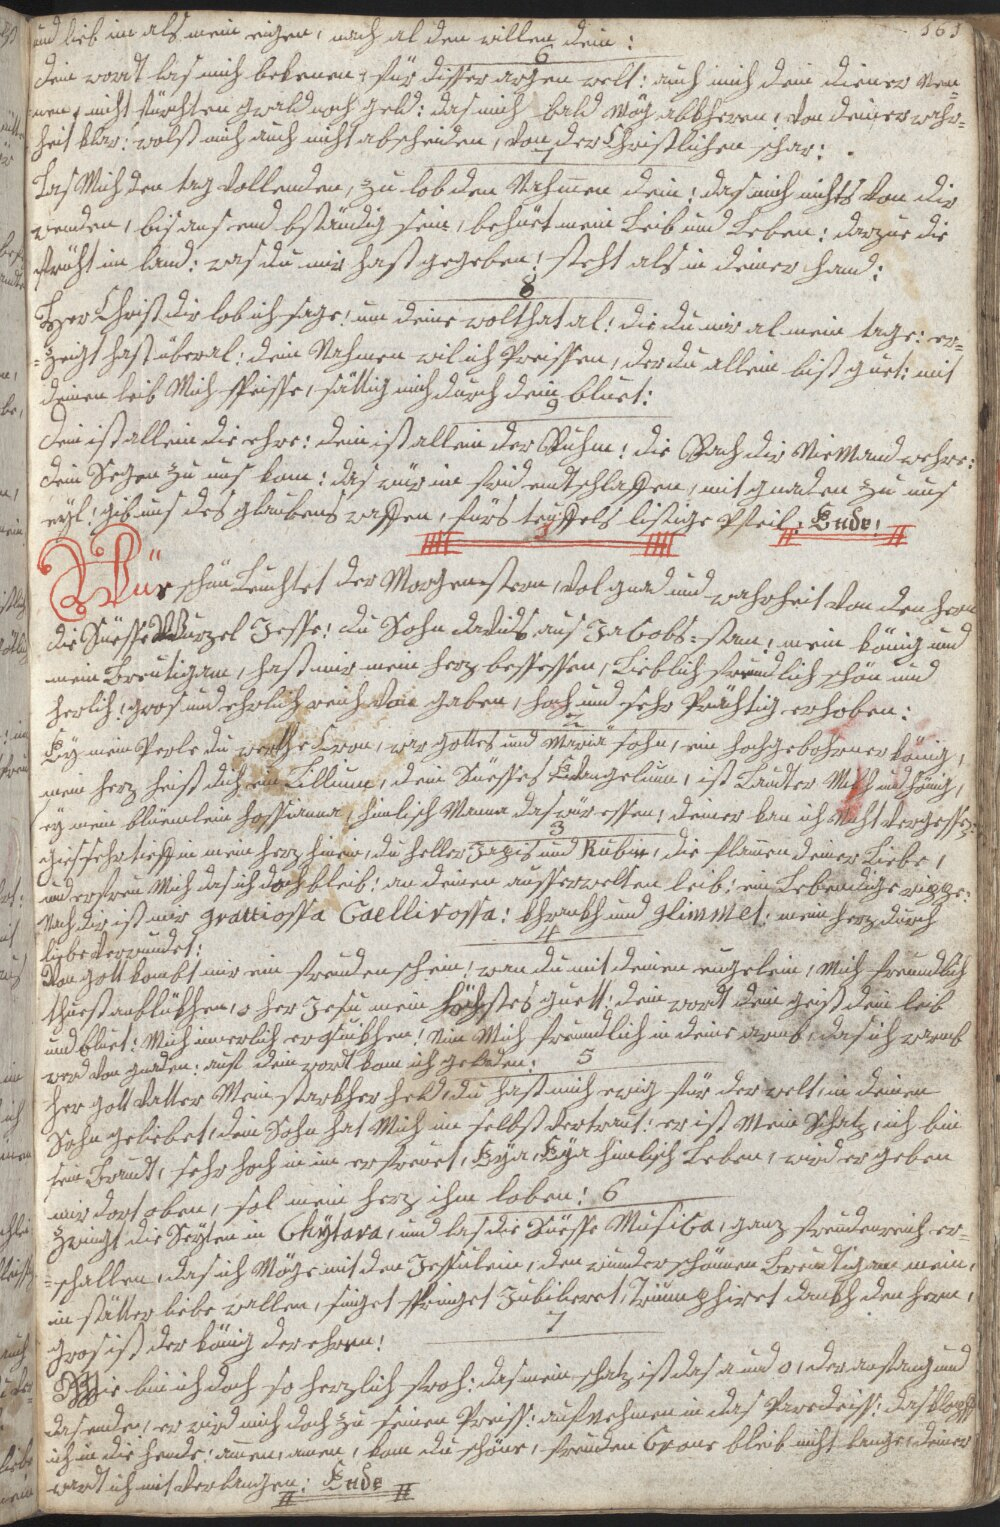 161
und lieb im als mein eigen, nach al den willen dein:
6
Dein wordt las mich bekenen, für disser argen welt: auch mich dein diener nen=
nen, nicht fürchten gwald noch geld: das mich bald mög abkheren, von deiner wahr=
heit klar: wolst mich auch nicht abscheiden, von der Christlichen schar:
7
Las Mich den tag vollenden, zu lob den Nahmen dein: das mich nichts von dir
wenden, bis ans end bständig sein, behüet mein Leib und Leben: darzue die
frücht im land: was du mir hast gegeben, steht als in deiner hand:
8
Herr Christ dir lob ich sage: um deine wolthat al: die du mir al mein tage: er=
=zeigt hast überal: dein Nahmen wil ich Preissen, der du allein bist guet: mit
deinen leib Mich speisse, sättig mich durch dein bluet:
9
Dein ist allein die ehre: dein ist allein der Ruhm: die Rach dir Niemand wehre:
dein Segen zu uns kom: das wür im frid endtschlaffen, mit gnaden zu uns
eyl: gib uns des glaubens waffen, fürs teuffels listige Pfeil, Ende:
1
Wür schön Leuchtet der Morgenstern, vol gnad und wahrheit von den hern
die Süesse Wurzel Jesse: du Sohn davids aus Jacobs=stam: mein könig und
mein Breutigam, hast mir mein herz bessessen, Lieblich freundlich schön und
herlich: gros und ehrlich reich von gaben, hoch und sehr Prächtig erhoben:
2
Ey mein Perle du werthe Cron, war gottes und Mariä sohn, ein hochgebohrner könig,
mein herz heist dich ein Lillium, dein Süesses Evangelium, ist Lauter Milch und hönig,
ey mein blüemlein hossianna, himlisch Manna das wür essen, deiner kan ich nicht vergessen:
3
Gies sehr tieff in mein herz hinein, du heller Jaspis und Rubin, die flamen deiner Liebe,
und erfreu Mich das ich doch bleib: an deinen ausserwelten leib: ein Lebendige rippe:
Nach dir ist mir grattiossa Caellirossa: khrankh und glimmet: mein herz durch
liebe verwundet:
4
Von gott kombt mir ein freudenschein: wan du mit deinen eugelein, Mich freundlich
thuest anblükhen, o her Jesu mein Höchstes guett: dein wordt dein geist dein leib
und bluet: Mich innerlich erquikhen: Nim Mich freundlich in deine armb, das ich warmb
werd von gnaden: auff dein wort kom ich geladen:
5
her gott vatter Mein starkher held, du hast mich ewig für der welt, in deinen
Sohn geliebet, dein Sohn hat Mich im selbst vertraut: er ist Mein Schatz, ich bin
sein Braudt, sehr hoch in im erfreuet, Eya, Eya himlisch Leben, wird er geben
mir dort oben, sol mein herz ihm loben:
6
Zwingt die Seyten in Chytara, und las die Süesse Musica, ganz freudenreich er=
=schallen, das ich Möge mit den Jessulein, den wunder schönnen Breutigam mein,
in stätter liebe wallen, singet springet Jubiliret, Triumphiret dankh den hern,
gros ist der könig der ehren:
7
Wie bin ich doch so herzlich froh: das mein schatz ist das a und o, der anfang und
das ende, er wird mich doch zu seinen Preiss: auf nehmen in das Paredeiss: das klopff
ich in die hende: amen, amen, kom du schöne, freuden Crone bleib nicht lange, deiner
wardt ich mit verlangen: Ende